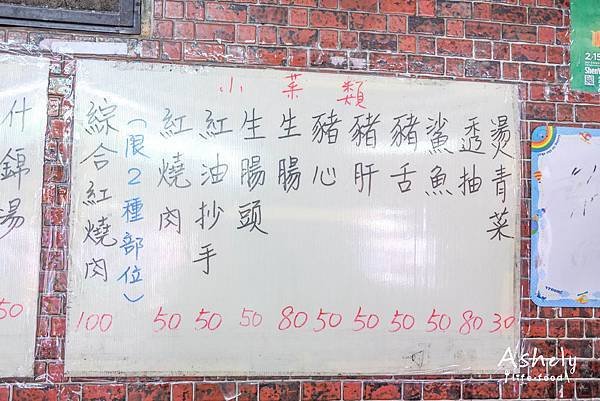 小菜類
燙青菜 30
透抽 80
鯊魚 50
豬舌 50
豬肝 50
豬心 50
生腸 80
生腸頭 50
紅油抄手 50
紅燒肉 50
(限2種部位)
綜合紅燒肉 100
什錦湯 50
2.15
Ashely
life.food